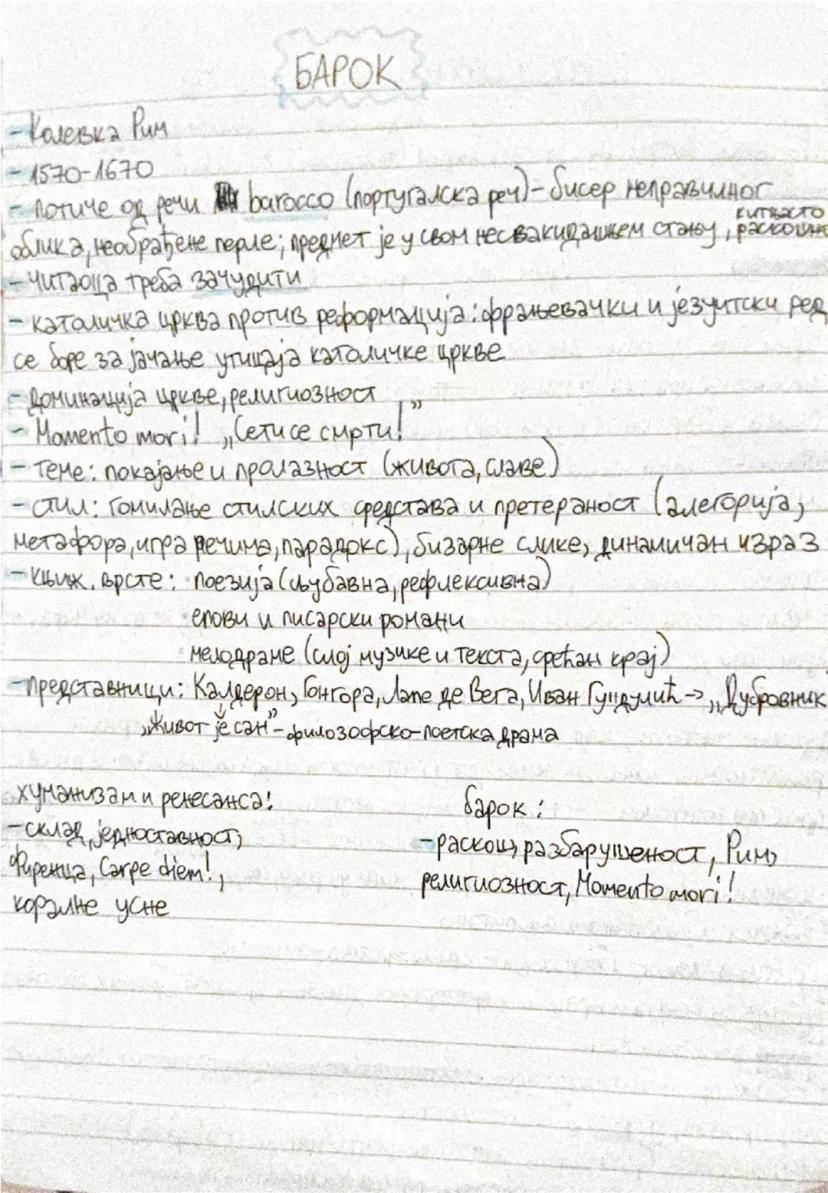 БАРОК
- Колевка Рим
- 1570-1670
- потиче од речи barocco (португалска реч) - бисер неправилног
облика, необрађене перле; предмет је у свом несвакидашњем стању, китњасто раскошно
- читаоца треба зачудити
- католичка црква против реформација: фрањевачки и језуитски ред
се боре за јачање утицаја католичке цркве
- доминација цркве, религиозност
- Momento mori! „Сети се смрти!”
- теме: покајање и пролазност (живота, славе)
- стил: гомилање стилских средстава и претераност (алегорија,
метафора, игра речима, парадокс), бизарне слике, динамичан израз
- књиж. врсте: поезија (љубавна, рефлексивна)
епови и писарски романи
мелодраме (спој музике и текста, срећан крај)
- представници: Калдерон, Гонгора, Лапе де Вега, Иван Гундулић → „Дубровник
„Живот је сан” - филозофско-поетска драма
хуманизам и ренесанса:
- склад, једноставност,
Фиренца, Carpe diem!,
коралне усне
барок:
- раскош, разбарушеност, Рим,
религиозност, Momento mori!